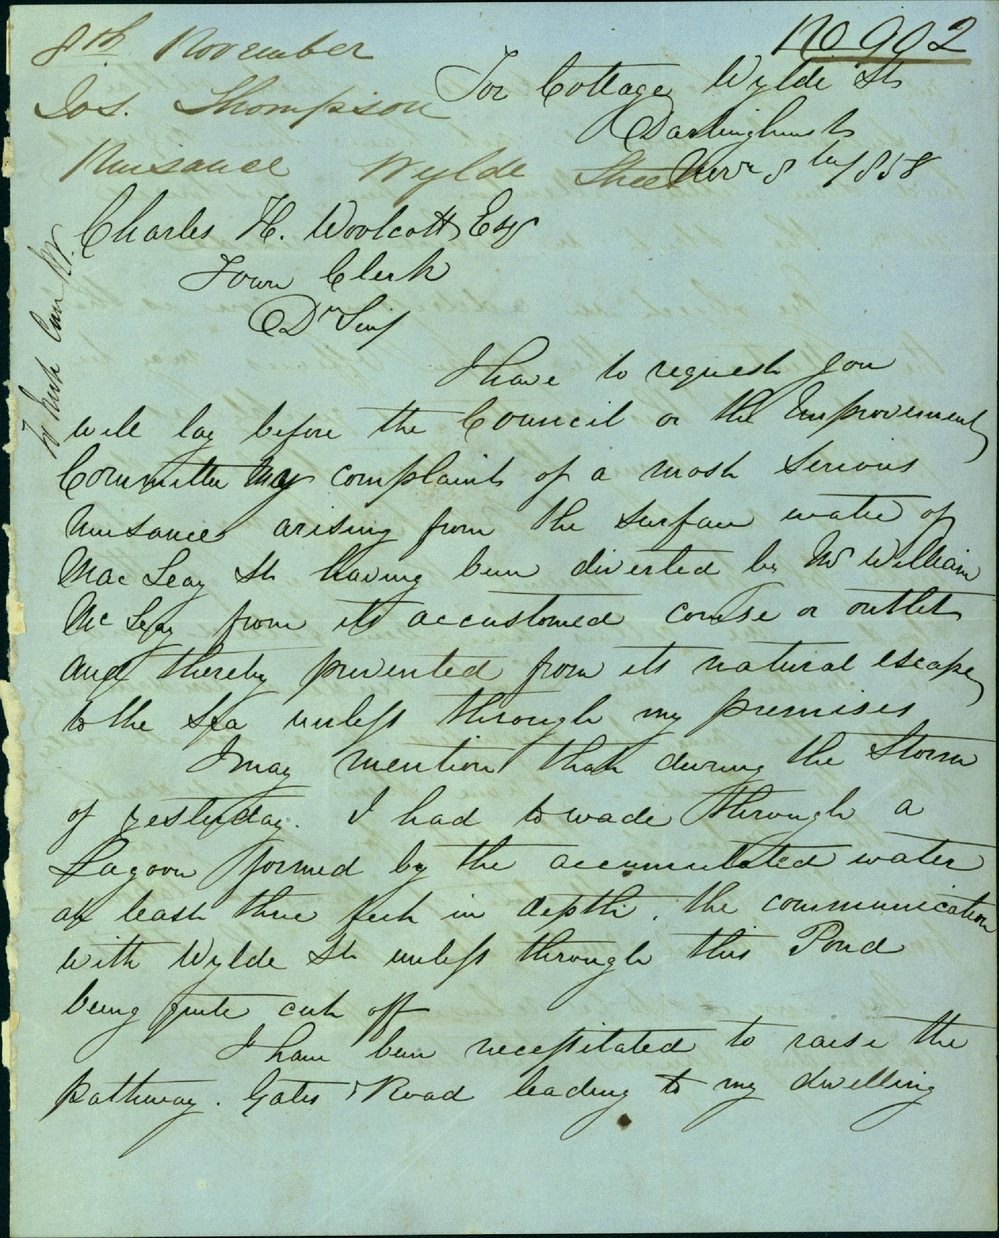 No 902
8th November
Jos. Thompson
Nuisance Wylde Street
Tor Cottage Wylde St
Darlinghurst
Novr 8th 1858
Charles H. Woolcott Esqr
Town Clerk
Dr Sir
I have to request you
will lay before the Council or the Improvement
Committee my complaint of a most serious
nuisance arising from the surface water of
MacLeay St having been diverted by Mr William
McLeay from its accustomed course or outlet
and thereby prevented from its natural escape
to the Sea unless through my premises
I may mention that during the Storm
of yesterday. I had to wade through a
Lagoon formed by the accumulated water
at least three feet in depth. the communication
with Wylde St unless through this Pond
being quite cut off
I have been necessitated to raise the
pathway. Gates & Road leading to my dwelling